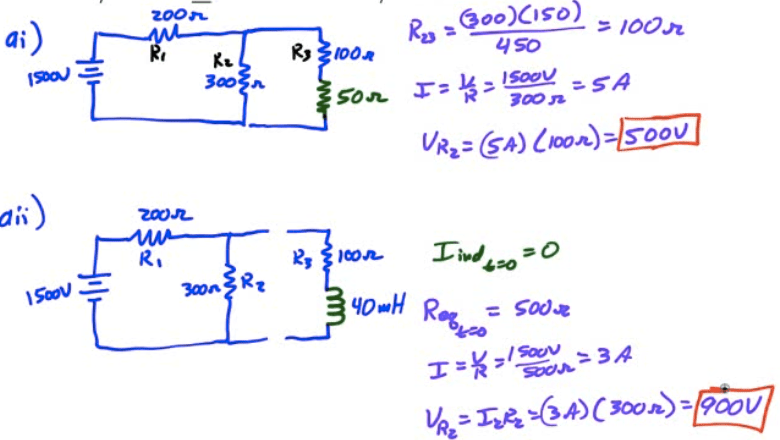 ai)
200Ω
R₁
1500V
R₂
300Ω
R₃
100Ω
50Ω
R₂₃ = (300)(150) / 450 = 100Ω
I = V/R = 1500V / 300Ω = 5A
V_R₂ = (5A)(100Ω) = 500V
aii)
200Ω
R₁
1500V
300Ω
R₂
R₃
100Ω
40mH
I ind t=0 = 0
Req t=0 = 500Ω
I = V/R = 1500V / 500Ω = 3A
V_R₂ = I₂R₂ = (3A)(300Ω) = 900V